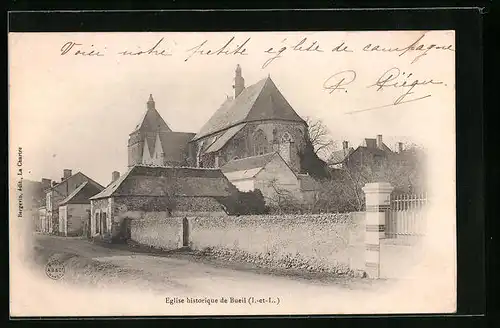 Voici notre petite église de campagne
P. Piégu
Bergerin, édit., La Chartre
Eglise historique de Bueil (I.-et-L.)